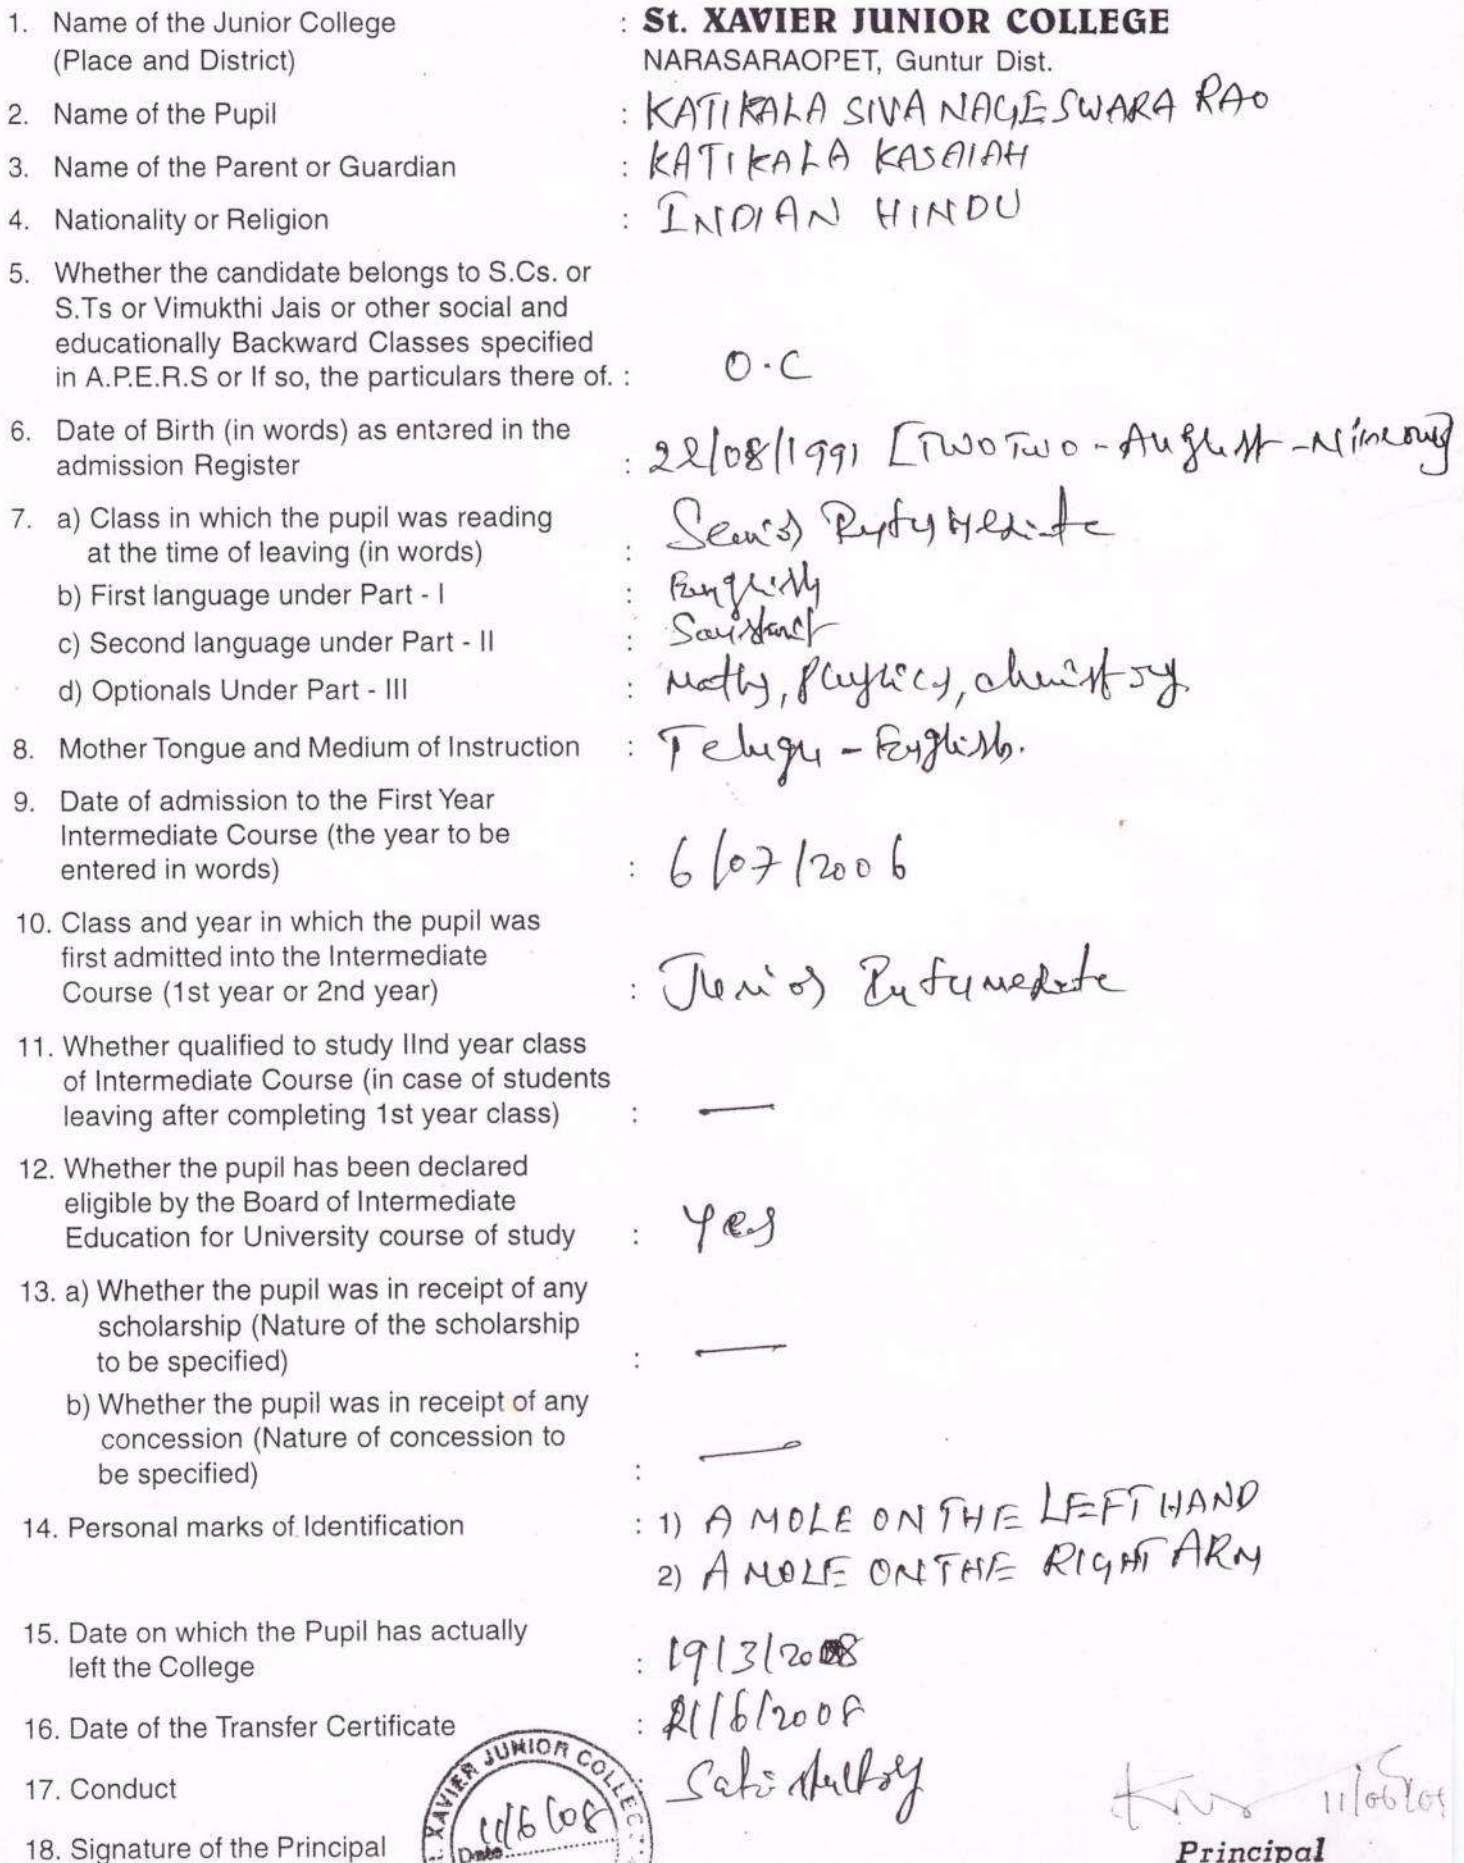 1. Name of the Junior College : St. XAVIER JUNIOR COLLEGE
(Place and District) NARASARAOPET, Guntur Dist.
2. Name of the Pupil : KATIKALA SIVA NAGESWARA RAO
3. Name of the Parent or Guardian : KATIKALA KASAIAH
4. Nationality or Religion : INDIAN HINDU
5. Whether the candidate belongs to S.Cs. or
S.Ts or Vimukthi Jais or other social and
educationally Backward Classes specified
in A.P.E.R.S or If so, the particulars there of. : O.C
6. Date of Birth (in words) as entered in the
admission Register : 22/08/1991 [TWO TWO - August -
7. a) Class in which the pupil was reading
at the time of leaving (in words) : Senior Intermediate
b) First language under Part - I : English
c) Second language under Part - II : Sanskrit
d) Optionals Under Part - III : Maths, Physics, chemistry
8. Mother Tongue and Medium of Instruction : Telugu - English.
9. Date of admission to the First Year
Intermediate Course (the year to be
entered in words) : 6/07/2006
10. Class and year in which the pupil was
first admitted into the Intermediate
Course (1st year or 2nd year) : Junior Intermediate
11. Whether qualified to study IInd year class
of Intermediate Course (in case of students
leaving after completing 1st year class) : —
12. Whether the pupil has been declared
eligible by the Board of Intermediate
Education for University course of study : Yes
13. a) Whether the pupil was in receipt of any
scholarship (Nature of the scholarship
to be specified) : —
b) Whether the pupil was in receipt of any
concession (Nature of concession to
be specified) : —
14. Personal marks of Identification : 1) A MOLE ON THE LEFT HAND
2) A MOLE ON THE RIGHT ARM
15. Date on which the Pupil has actually
left the College : 19/3/2008
16. Date of the Transfer Certificate : /6/2008
17. Conduct : Satisfactory
XAVIER JUNIOR COLLEGE
11/6/08
Date
11/06/08
18. Signature of the Principal
Principal